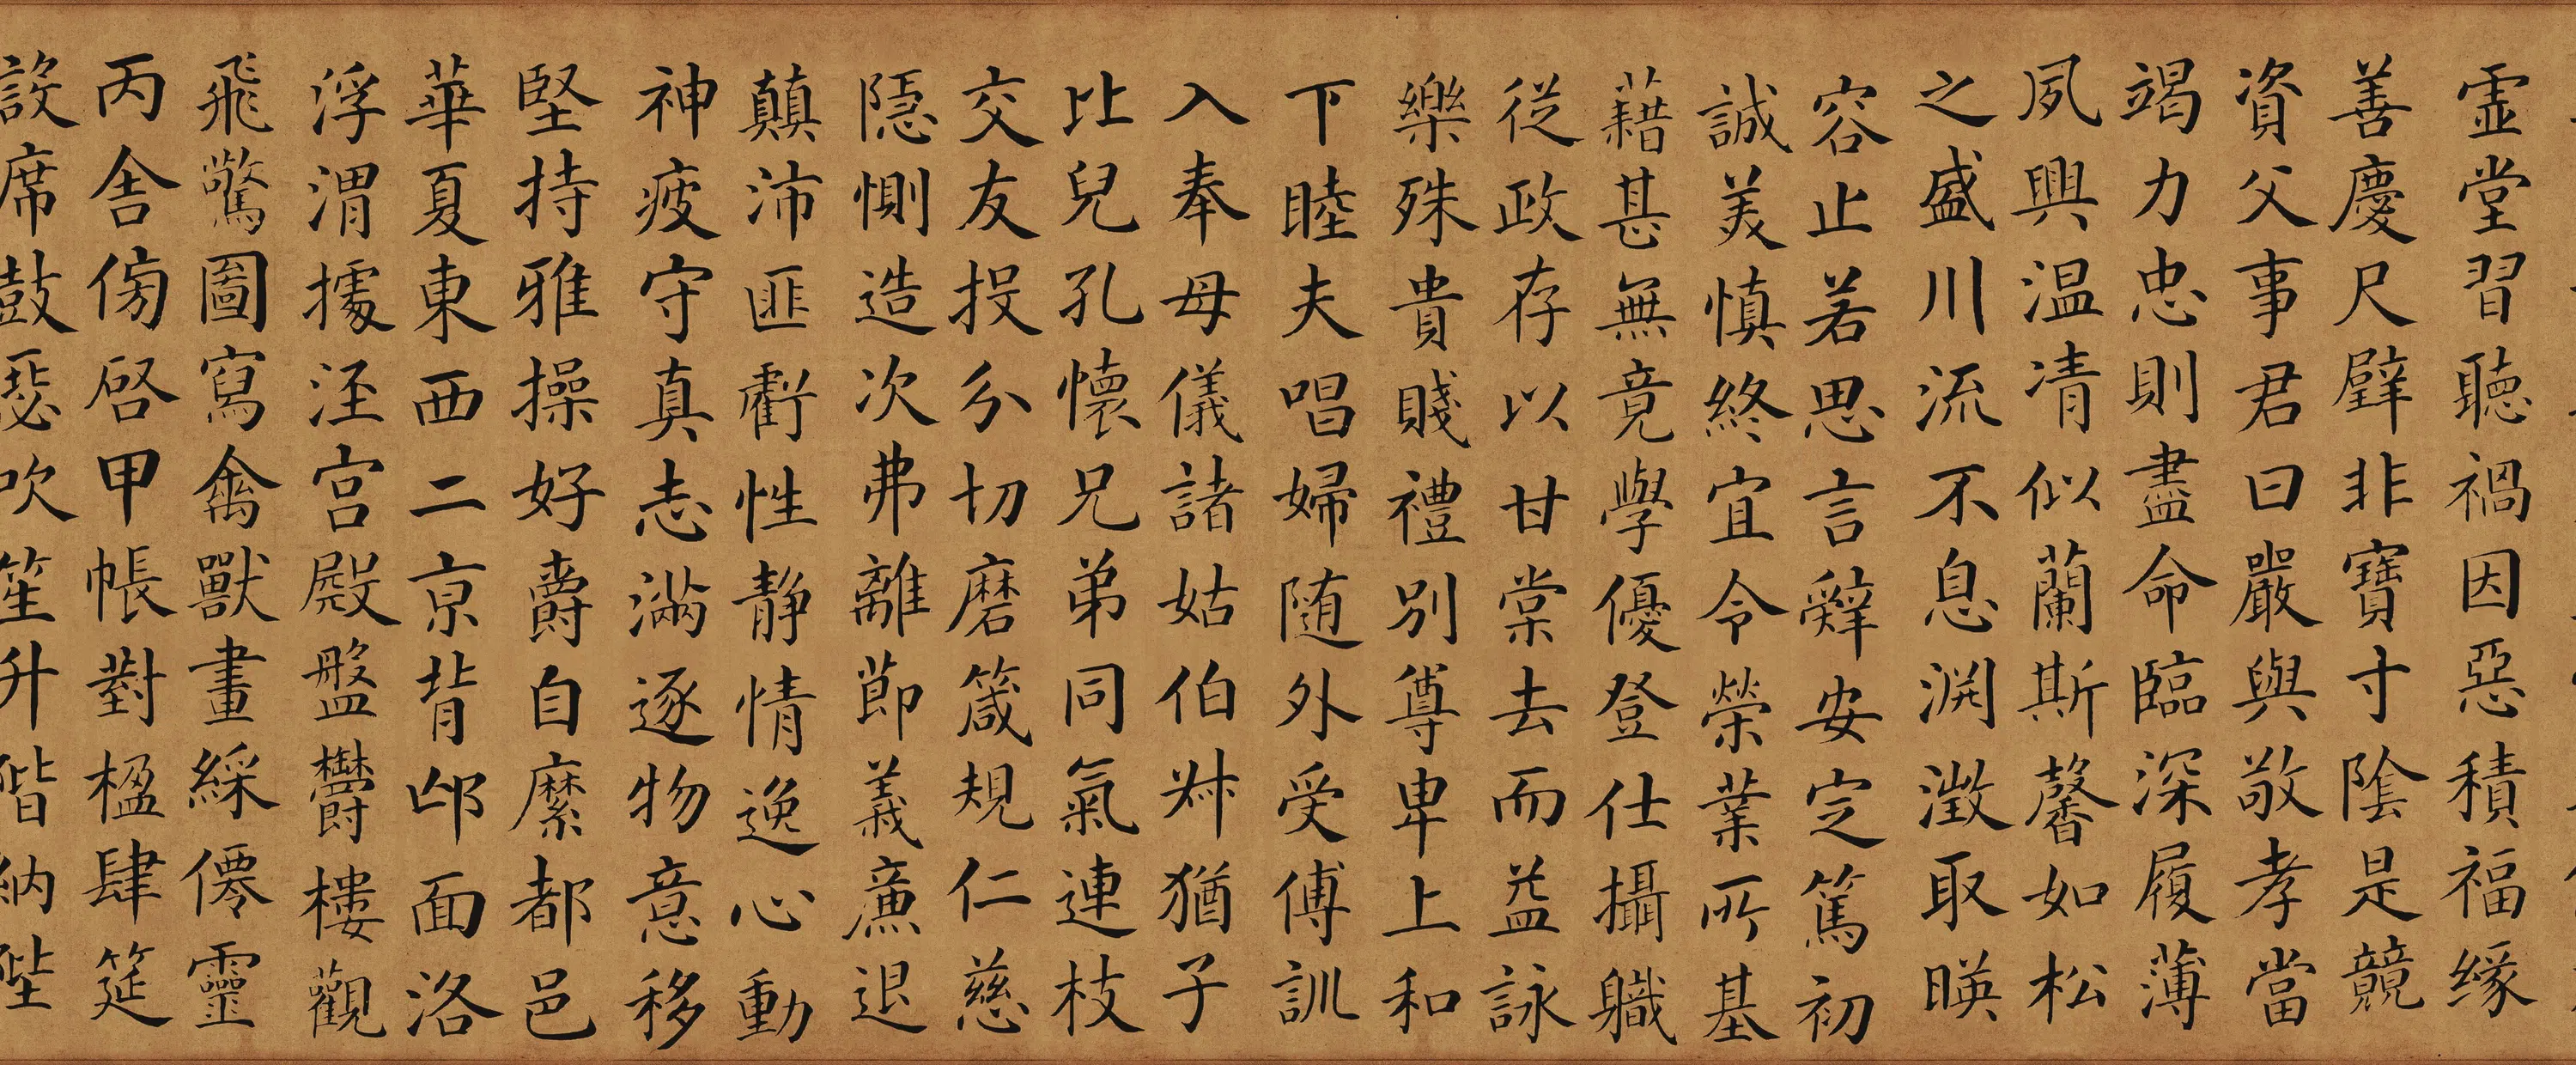 虛堂習聽禍因惡積福緣
善慶尺璧非寶寸陰是競
資父事君曰嚴與敬孝當
竭力忠則盡命臨深履薄
夙興温凊似蘭斯馨如松
之盛川流不息渊澂取暎
容止若思言辭安定篤初
誠美慎終宜令榮業所基
藉甚無竟學優登仕攝職
從政存以甘棠去而益詠
樂殊貴賤禮別尊卑上和
下睦夫唱婦随外受傅訓
入奉母儀諸姑伯叔猶子
比兒孔懷兄弟同氣連枝
交友投分切磨箴規仁慈
隱惻造次弗離節義廉退
顛沛匪虧性静情逸心動
神疲守真志滿逐物意移
堅持雅操好爵自縻都邑
華夏東西二京背邙面洛
浮渭據涇宫殿盤欝樓觀
飛驚圖寫禽獸畫綵僊靈
丙舍傍啓甲帳對楹肆筵
設席鼓瑟吹笙升階納陛